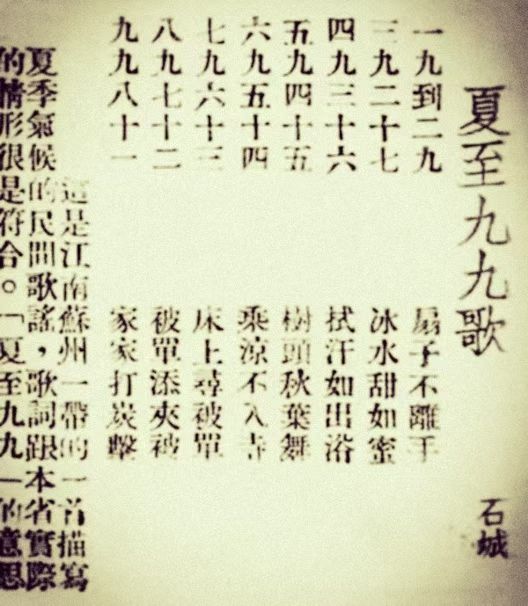 夏至九九歌
石城
一九到二九 扇子不離手
三九二十七 冰水甜如蜜
四九三十六 拭汗如出浴
五九四十五 樹頭秋葉舞
六九五十四 乘涼不入寺
七九六十三 床上尋被單
八九七十二 被單添夾被
九九八十一 家家打炭擊
這是江南蘇州一帶的一首描寫
夏季氣候的民間歌謠，歌詞跟本省實際
的情形很是符合。「夏至九九」的意思